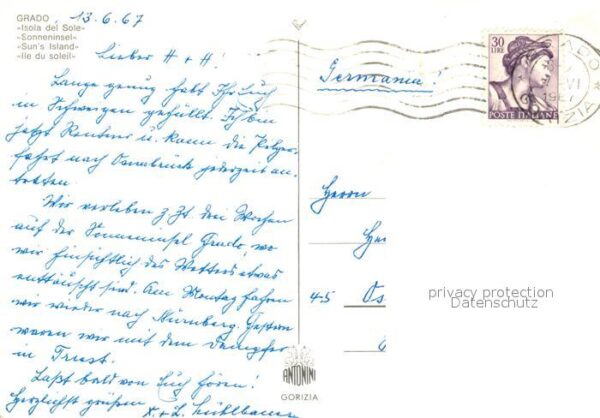 GRADO
-Isola del Sole-
-Sonneninsel-
-Sun's Island-
-Ile du soleil-
13.6.67
Lieber H + H!
Lange genug habt Ihr Euch
in Schweigen gehüllt. Ich bin
jetzt Rentner u. kann die Pilger-
fahrt nach Osnabrück jederzeit an-
treten.
Wir verleben z. Zt. drei Wochen
auf der Sonneninsel Grado, wo
wir hinsichtlich des Wetters etwas
enttäuscht sind. Am Montag fahren
wir wieder nach Nürnberg. Gestern
waren wir mit dem Dampfer
in Triest.
Laßt bald von Euch hören!
Herzlichst grüßen
Germania!
30
LIRE
POSTE ITALIANE
Herrn
He
45 Os
privacy protection
Datenschutz
ANTONINI
GORIZIA